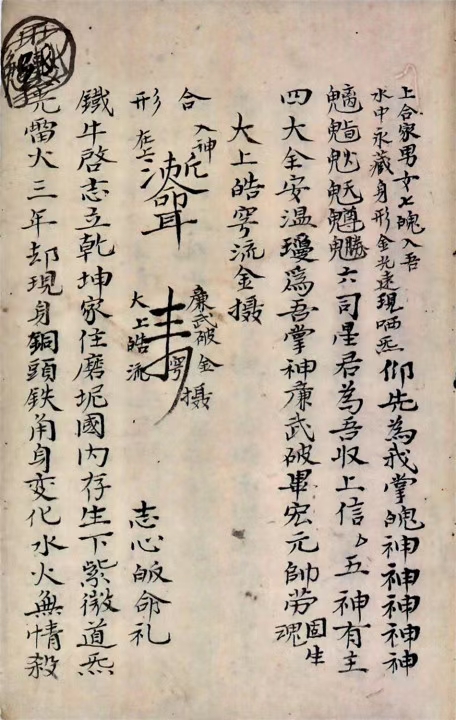 上合家男女七魄入吾
水中永藏身形金光遠現哂炁
仰先為我掌魄神神神神神
魑魁魀魊魒魓六司星君為吾収上信五神有主
四大全安温瓊為吾掌神廉武破畢宏元帥勞固生魂
大上皓雩流金摄
合形
入神
在上
廉武破金摄
大上皓流雩
志心皈命礼
鐵牛啓志立乾坤家住磨坭國内存生下紫微道炁
雷火三年却現身銅頭鉄角身变化水火無情殺